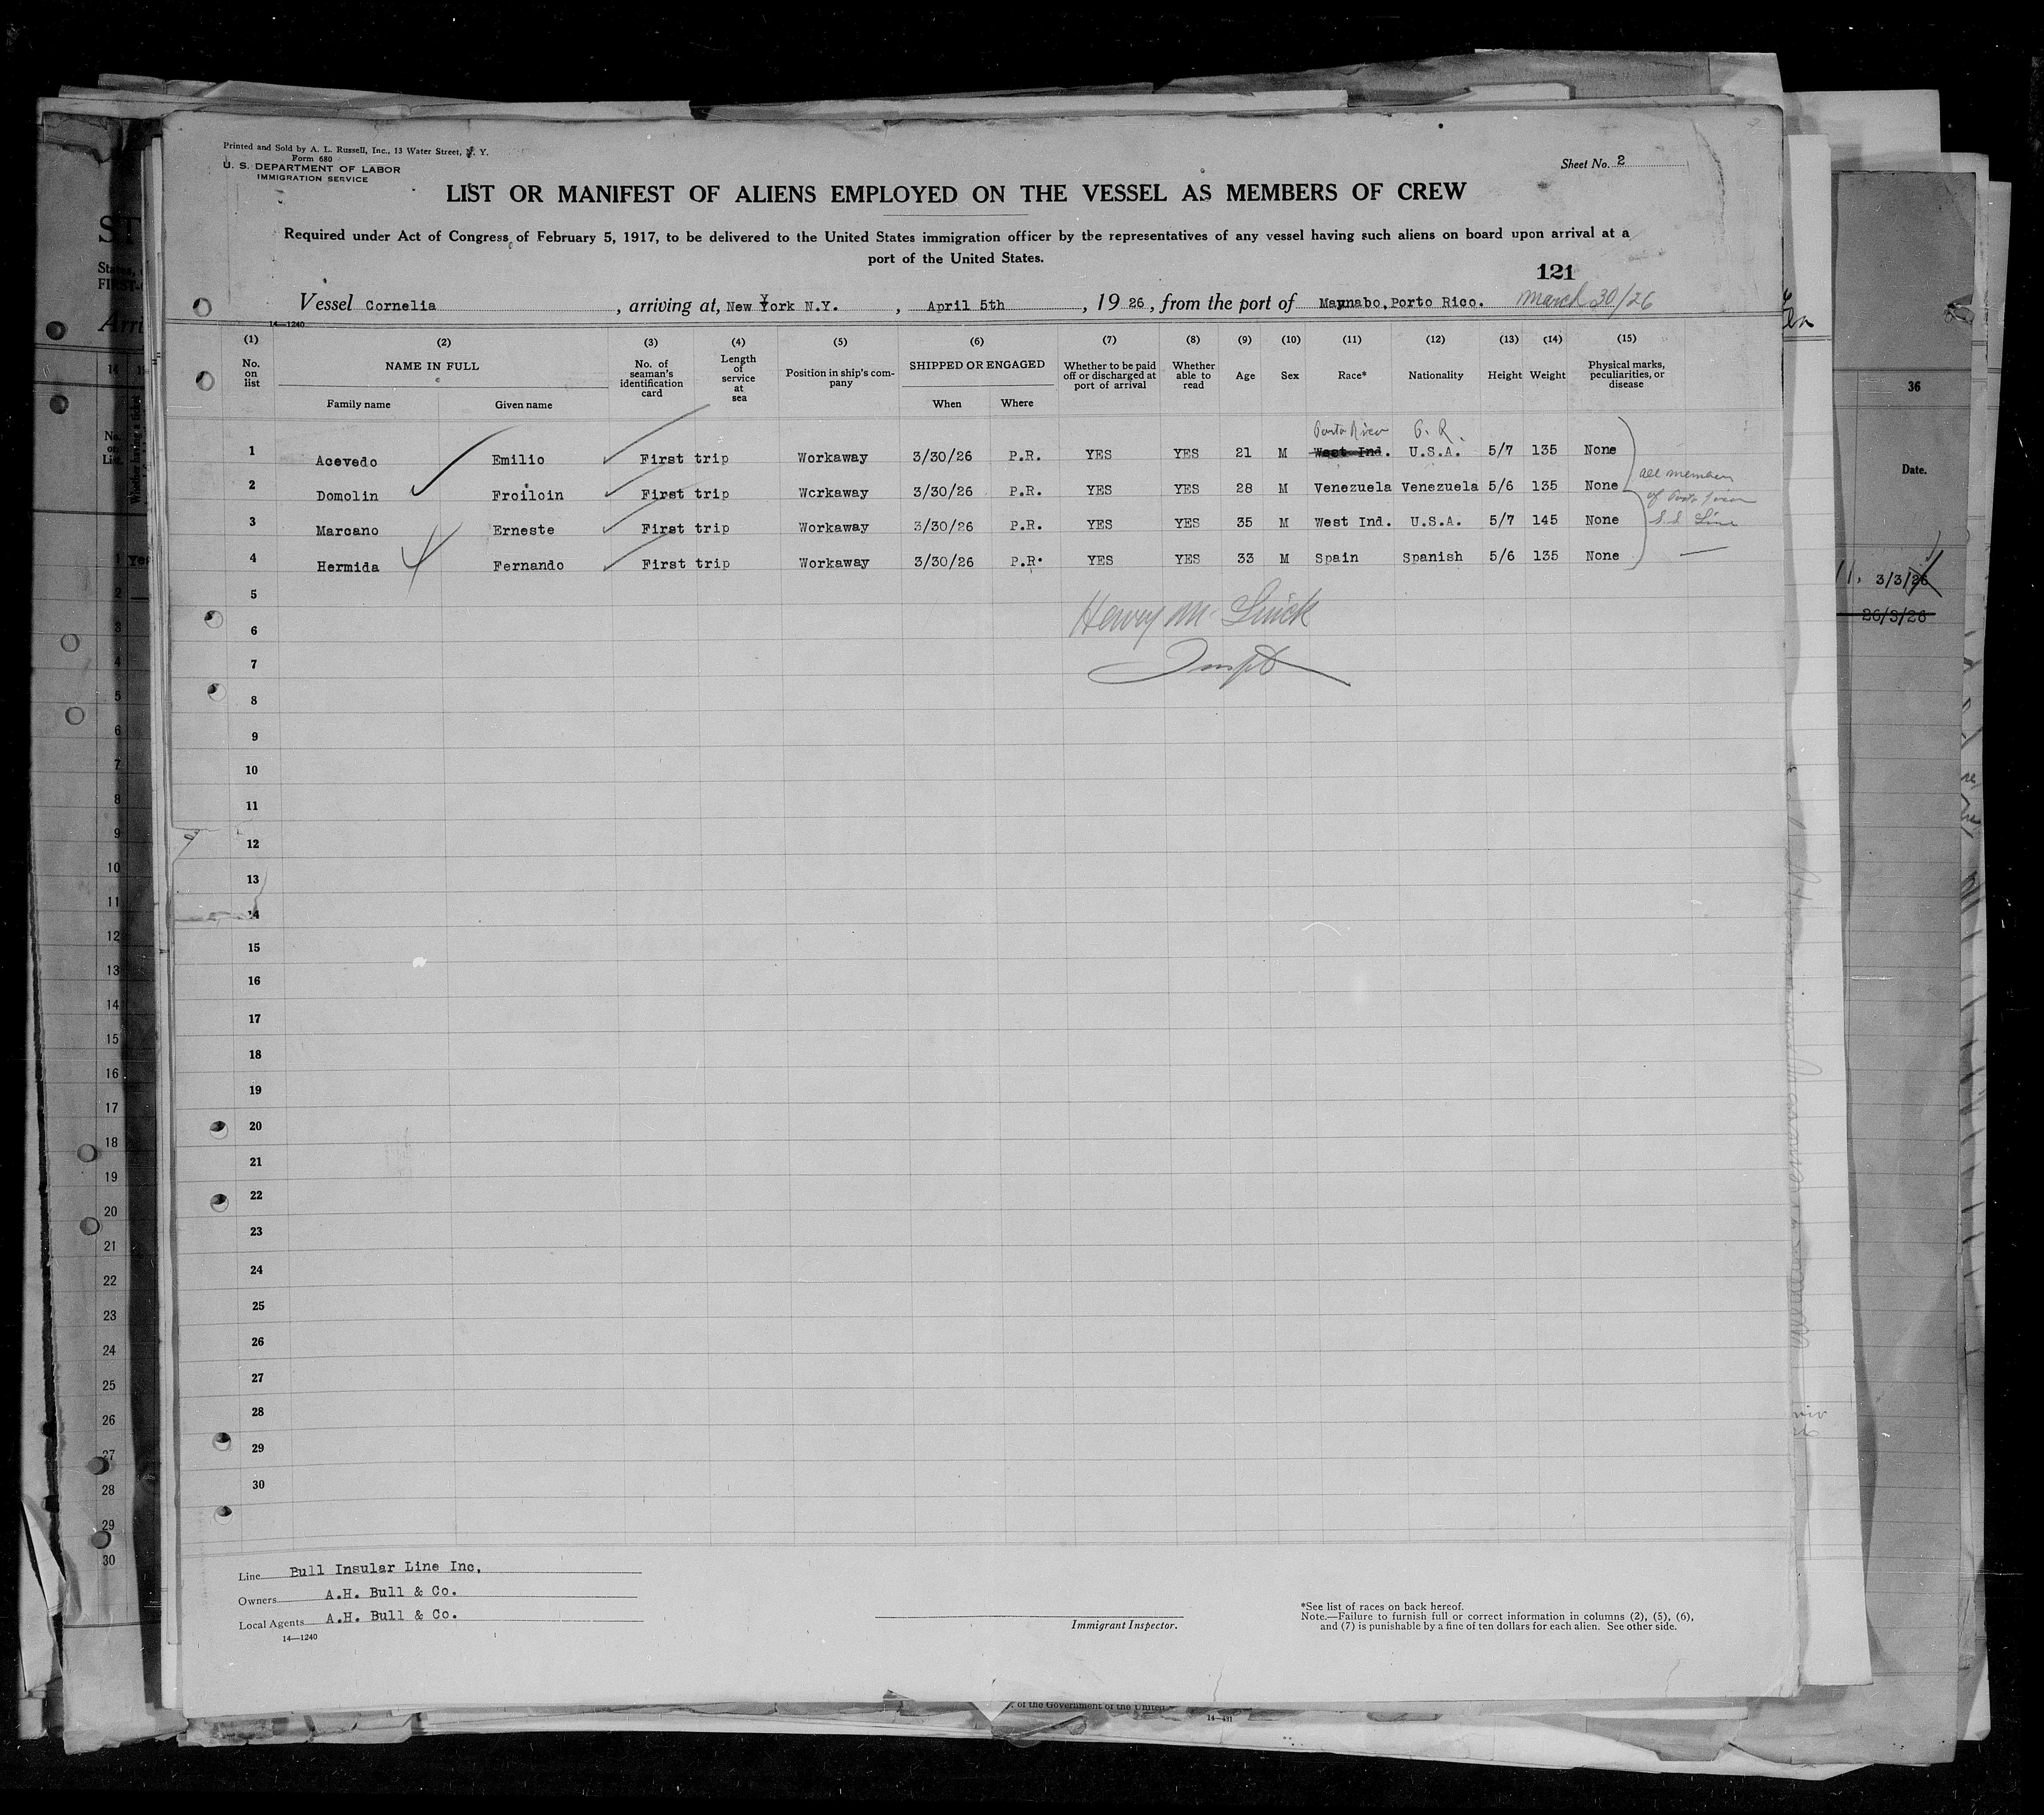 Printed and Sold by A. L. Russell, Inc., 13 Water Street, N. Y.
Form 680
U. S. DEPARTMENT OF LABOR
IMMIGRATION SERVICE
Sheet No. 2
LIST OR MANIFEST OF ALIENS EMPLOYED ON THE VESSEL AS MEMBERS OF CREW
Required under Act of Congress of February 5, 1917, to be delivered to the United States immigration officer by the representatives of any vessel having such aliens on board upon arrival at a
port of the United States.
121
Vessel Cornelia, arriving at, New York N.Y., April 5th, 1926, from the port of Maunabo, Porto Rico. March 30/26
14—1240
(1) (2) (3) (4) (5) (6) (7) (8) (9) (10) (11) (12) (13) (14) (15)
No. on list NAME IN FULL Family name Given name No. of seaman's identification card Length of service at sea Position in ship's company SHIPPED OR ENGAGED When Where Whether to be paid off or discharged at port of arrival Whether able to read Age Sex Race* Nationality Height Weight Physical marks, peculiarities, or disease
Porto Rico P. R.
1 Acevedo Emilio First trip Workaway 3/30/26 P.R. YES YES 21 M West Ind. U.S.A. 5/7 135 None
2 Domolin Froiloin First trip Workaway 3/30/26 P.R. YES YES 28 M Venezuela Venezuela 5/6 135 None
3 Marcano Erneste First trip Workaway 3/30/26 P.R. YES YES 35 M West Ind. U.S.A. 5/7 145 None
4 Hermida Fernando First trip Workaway 3/30/26 P.R. YES YES 33 M Spain Spanish 5/6 135 None
all members
of Porto Rican
S.S. Line
5
6
7
8
9
10
11
12
13
14
15
16
17
18
19
20
21
22
23
24
25
26
27
28
29
30
Inspt
Line Bull Insular Line Inc,
Owners A.H. Bull & Co.
Local Agents A.H. Bull & Co.
14—1240
Immigrant Inspector.
*See list of races on back hereof.
Note.—Failure to furnish full or correct information in columns (2), (5), (6),
and (7) is punishable by a fine of ten dollars for each alien. See other side.
36
Date.
3/3/26
26/3/26
of the Government of the United
14—431